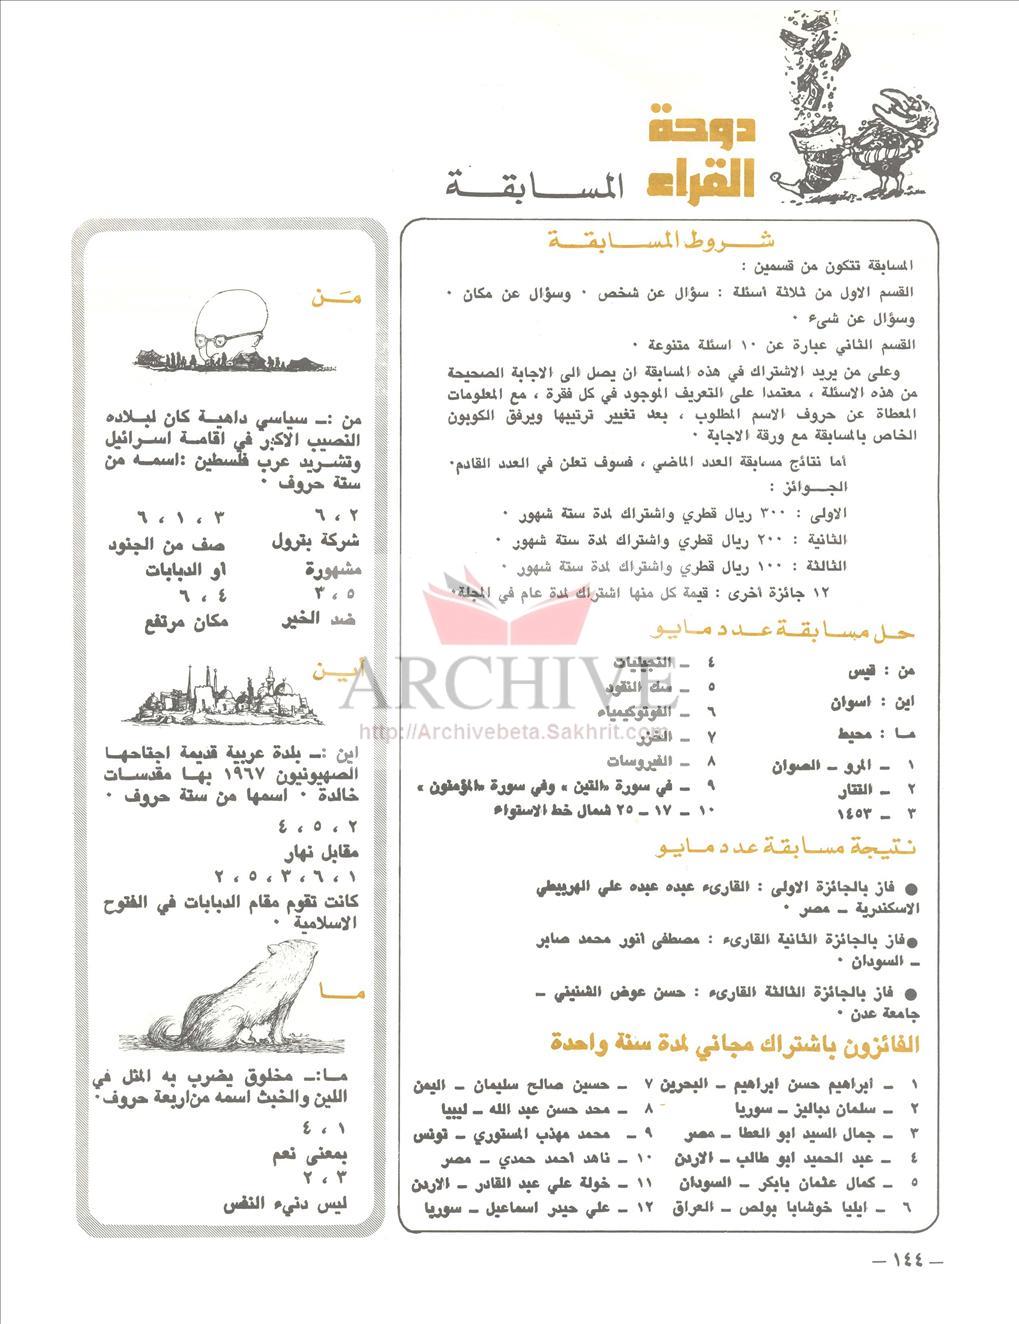 دوحة
القراء
المسابقة
شروط المسابقة
المسابقة تتكون من قسمين :
القسم الاول من ثلاثة أسئلة : سؤال عن شخص ٠ وسؤال عن مكان ٠
وسؤال عن شيء ٠
القسم الثاني عبارة عن ١٠ اسئلة متنوعة ٠
وعلى من يريد الاشتراك في هذه المسابقة ان يصل الى الاجابة الصحيحة
من هذه الاسئلة ، معتمدا على التعريف الموجود في كل فقرة ، مع المعلومات
المعطاة عن حروف الاسم المطلوب ، بعد تغيير ترتيبها ويرفق الكوبون
الخاص بالمسابقة مع ورقة الاجابة ٠
أما نتائج مسابقة العدد الماضي ، فسوف تعلن في العدد القادم٠
الجوائز :
الاولى : ٣٠٠ ريال قطري واشتراك لمدة ستة شهور ٠
الثانية : ٢٠٠ ريال قطري واشتراك لمدة ستة شهور ٠
الثالثة : ١٠٠ ريال قطري واشتراك لمدة ستة شهور ٠
١٢ جائزة أخرى : قيمة كل منها اشتراك لمدة عام في المجلة٠
حل مسابقة عدد مايو
من : قيس
اين : اسوان
ما : محيط
١ ـ المرو ـ الصوان
٢ ـ النقار
٣ ـ ١٤٥٣
٤ ـ النجيليات
٥ ـ سك النقود
٦ ـ الفوتوكيمياء
٧ ـ الخزر
٨ ـ الفيروسات
٩ ـ في سورة «التين » وفي سورة «المؤمنون »
١٠ ـ ١٧ ـ ٢٥ شمال خط الاستواء
نتيجة مسابقة عدد مايو
● فاز بالجائزة الاولى : القارىء عبده عبده علي الهربيطي
الاسكندرية ـ مصر ٠
●فاز بالجائزة الثانية القارىء : مصطفى أنور محمد صابر
ـ السودان ٠
● فاز بالجائزة الثالثة القارىء : حسن عوض الشنيني ـ
جامعة عدن ٠
الفائزون باشتراك مجاني لمدة سنة واحدة
١ ـ ابراهيم حسن ابراهيم ـ البحرين
٢ ـ سلمان دباليز ـ سوريا
٣ ـ جمال السيد ابو العطا ـ مصر
٤ ـ عبد الحميد ابو طالب ـ الاردن
٥ ـ كمال عثمان بابكر ـ السودان
٦ ـ ايليا خوشابا بولص ـ العراق
٧ ـ حسين صالح سليمان ـ اليمن
٨ ـ محد حسن عبد الله ـ ليبيا
٩ ـ محمد مهذب المستوري ـ تونس
١٠ ـ ناهد أحمد حمدي ـ مصر
١١ ـ خولة علي عبد القادر ـ الاردن
١٢ ـ علي حيدر اسماعيل ـ سوريا
مَن
من :ـ سياسي داهية كان لبلاده
النصيب الاكبر في اقامة اسرائيل
وتشريد عرب فلسطين :اسمه من
ستة حروف ٠
٢ ، ٦
شركة بترول
مشهورة
٥ ، ٣
ضد الخير
٣ ، ١ ، ٦
صف من الجنود
أو الدبابات
٤ ، ٦
مكان مرتفع
أين
اين :ـ بلدة عربية قديمة اجتاحها
الصهيونيون ١٩٦٧ بها مقدسات
خالدة ٠ اسمها من ستة حروف ٠
٢ ، ٥ ، ٤
مقابل نهار
١ ، ٦ ، ٣ ، ٥ ، ٢
كانت تقوم مقام الدبابات في الفتوح
الاسلامية ٠
ما
ما:ـ مخلوق يضرب به المثل في
اللين والخبث اسمه من اربعة حروف٠
١ ، ٤
بمعنى نعم
٣ ، ٢
ليس دنيء النفس
ARCHIVE
http://Archivebeta.Sakhrit.com
ـ ١٤٤ ـ